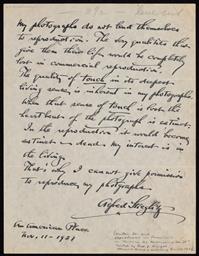 My photographs do not lend themselves
to reproduction. The very qualities that
give them their life would be completely
lost in commercial reproduction.
The quality of touch in its deepest
living sense, is inherent in my photographs.
When that sense of touch is lost the
heartbeat of the photograph is extinct.
In the reproduction it would become
extinct — dead. My interest is in
the living.
That's why I cannot give permission
to reproduce my photographs.
Alfred Stieglitz
An American Place
Nov. 11 - 1931